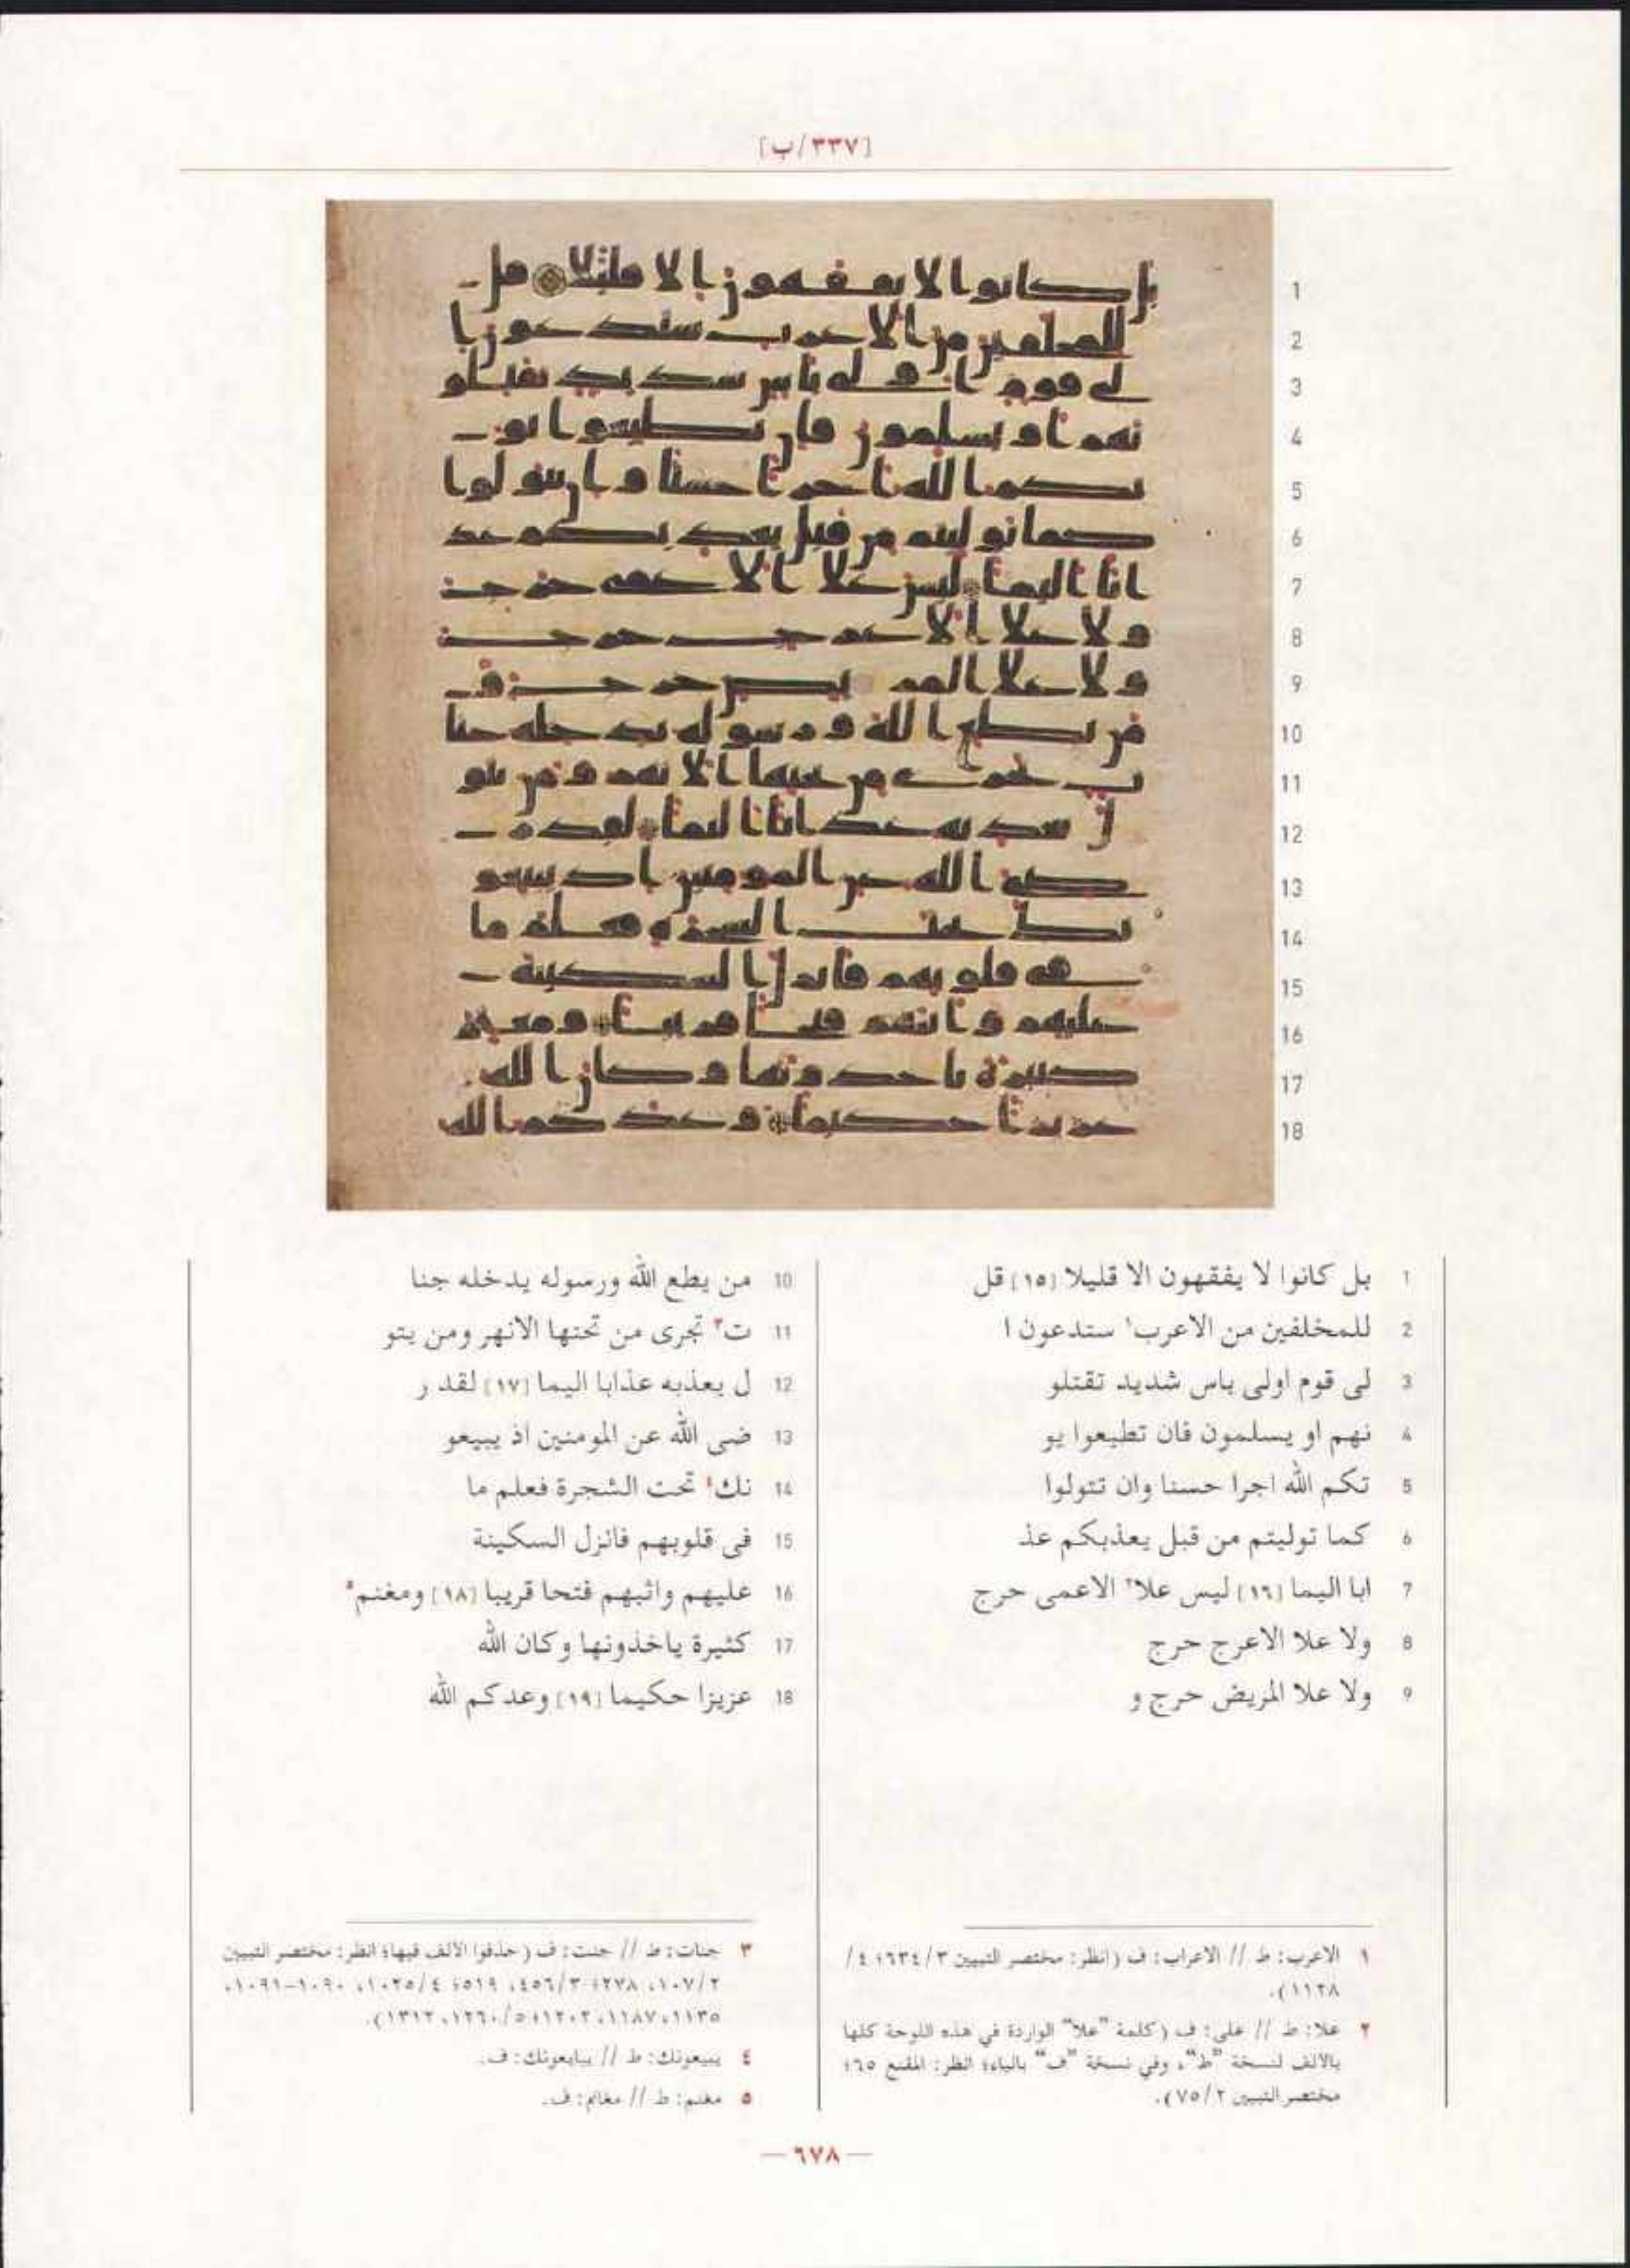 [٣٣٧/ب]
1
2
3
4
5
6
7
8
9
10
11
12
13
14
15
16
17
18
1 بل كانوا لا يفقهون الا قليلا [١٥] قل
2 للمخلفين من الاعرب١ ستدعون ا
3 لى قوم اولى باس شديد تقتلو
4 نهم او يسلمون فان تطيعوا يو
5 تكم الله اجرا حسنا وان تتولوا
6 كما توليتم من قبل يعذبكم عذ
7 ابا اليما [١٦] ليس علا٢ الاعمى حرج
8 ولا علا الاعرج حرج
9 ولا علا المريض حرج و
10 من يطع الله ورسوله يدخله جنا
11 ت٣ تجرى من تحتها الانهر ومن يتو
12 ل يعذبه عذابا اليما [١٧] لقد ر
13 ضى الله عن المومنين اذ يبيعو
14 نك٤ تحت الشجرة فعلم ما
15 فى قلوبهم فانزل السكينة
16 عليهم واثبهم فتحا قريبا [١٨] ومغنم٥
17 كثيرة ياخذونها وكان الله
18 عزيزا حكيما [١٩] وعدكم الله
١ الاعرب: ط // الاعراب: ف (انظر: مختصر التبيين ٣/٦٣٤؛ ٤/
١١٣٨).
٢ علا: ط // على: ف (كلمة "علا" الواردة في هذه اللوحة كلها
بالألف لنسخة "ط"، وفي نسخة "ف" بالياء؛ انظر: المقنع ٦٥؛
مختصر التبيين ٢/٧٥).
٣ جنات: ط // جنت: ف (حذفوا الألف فيها؛ انظر: مختصر التبيين
٢/١٠٧، ٢٧٨؛ ٣/٤٥٦، ٥١٩؛ ٤/١٠٢٥، ١٠٩٠-١٠٩١،
١١٣٥، ١١٨٧، ١٢٠٢؛ ٥/١٢٦٠، ١٣١٢).
٤ يبيعونك: ط // يبايعونك: ف.
٥ مغنم: ط // مغانم: ف.
— ٦٧٨ —